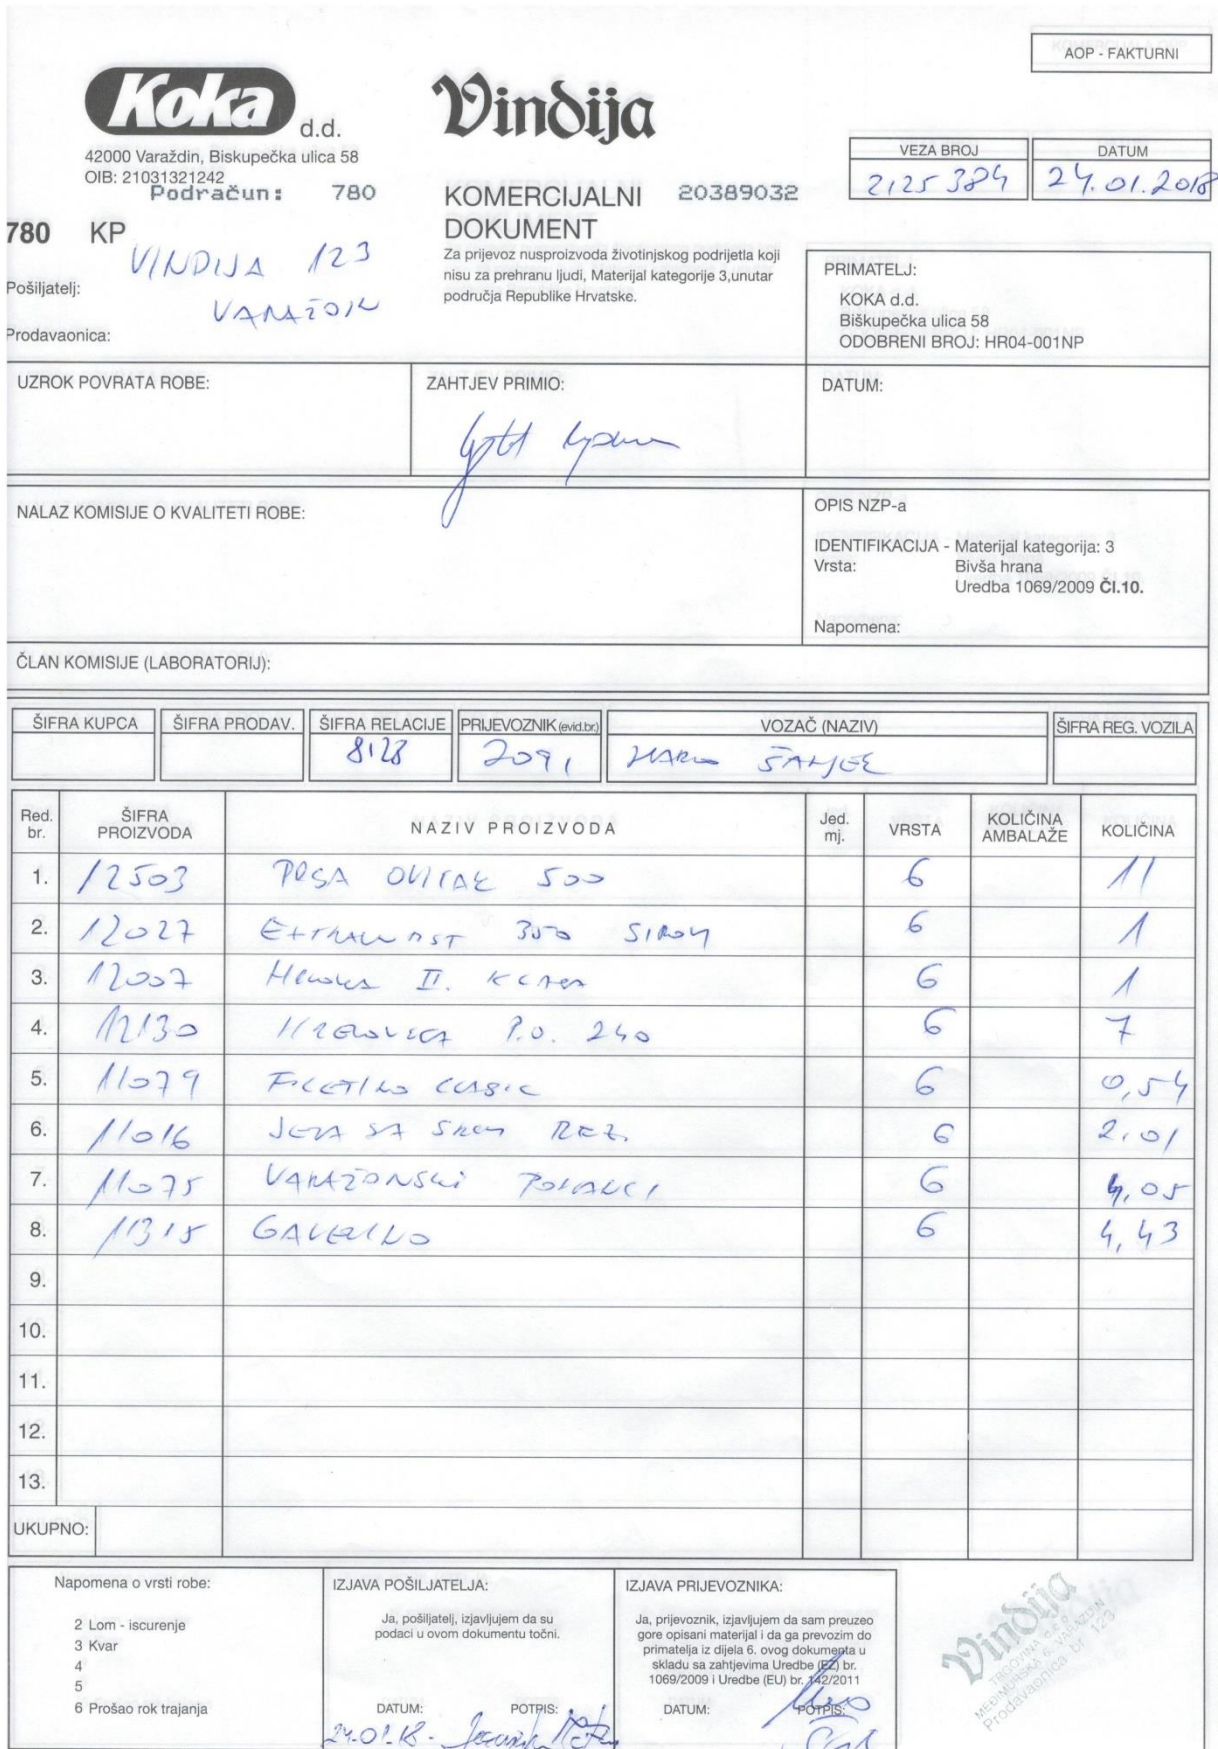 AOP - FAKTURNI
Koka d.d.
Vindija
42000 Varaždin, Biskupečka ulica 58
OIB: 21031321242
Podračun: 780
780 KP
VINDIJA 123
Pošiljatelj:
VARAŽDIN
Prodavaonica:
KOMERCIJALNI 20389032
DOKUMENT
Za prijevoz nusproizvoda životinjskog podrijetla koji
nisu za prehranu ljudi, Materijal kategorije 3,unutar
područja Republike Hrvatske.
VEZA BROJ DATUM
2125384 24.01.2018
PRIMATELJ:
KOKA d.d.
Biškupečka ulica 58
ODOBRENI BROJ: HR04-001NP
UZROK POVRATA ROBE: ZAHTJEV PRIMIO: DATUM:
NALAZ KOMISIJE O KVALITETI ROBE:
OPIS NZP-a
IDENTIFIKACIJA - Materijal kategorija: 3
Vrsta: Bivša hrana
Uredba 1069/2009 Čl.10.
Napomena:
ČLAN KOMISIJE (LABORATORIJ):
ŠIFRA KUPCA ŠIFRA PRODAV. ŠIFRA RELACIJE PRIJEVOZNIK (evid.br.) VOZAČ (NAZIV) ŠIFRA REG. VOZILA
8128 2091
Red. br. ŠIFRA PROIZVODA NAZIV PROIZVODA Jed. mj. VRSTA KOLIČINA AMBALAŽE KOLIČINA
1. 12503 500 6 11
2. 12027 350 6 1
3. 12007 II. 6 1
4. 12130 P.O. 240 6 7
5. 11079 6 0,54
6. 11016 SA REZ. 6 2,01
7. 11075 VARAŽDINSKI 6 4,05
8. 11315 6 4,43
9.
10.
11.
12.
13.
UKUPNO:
Napomena o vrsti robe:
2 Lom - iscurenje
3 Kvar
4
5
6 Prošao rok trajanja
IZJAVA POŠILJATELJA:
Ja, pošiljatelj, izjavljujem da su
podaci u ovom dokumentu točni.
DATUM: POTPIS:
24.01.18.
IZJAVA PRIJEVOZNIKA:
Ja, prijevoznik, izjavljujem da sam preuzeo
gore opisani materijal i da ga prevozim do
primatelja iz dijela 6. ovog dokumenta u
skladu sa zahtjevima Uredbe (EZ) br.
1069/2009 i Uredbe (EU) br. 142/2011
DATUM: POTPIS:
Vindija
TRGOVINA d.o.o.
MEĐIMURSKA 6, VARAŽDIN
Prodavaonica br. 123